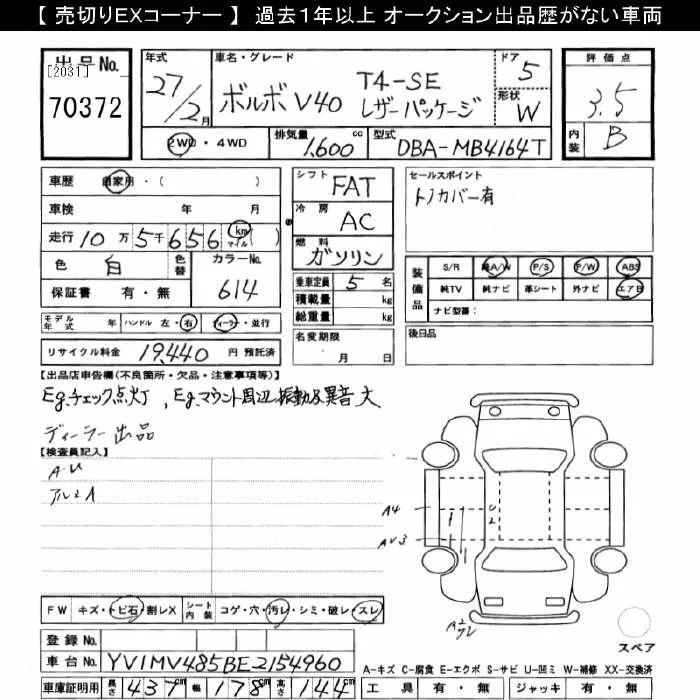 【 売切りEXコーナー 】 過去1年以上 オークション出品歴がない車両
出品No.
[2031]
70372
年式
27/2月
車名・グレード
ボルボ V40 T4-SE
レザーパッケージ
ドア
5
形状
W
評価点
3.5
内装
B
2WD・4WD
排気量
1,600 cc
型式
DBA-MB4164T
車歴 自家用・( )
車検 年 月
走行 10万5千656 km マイル ( )
色 白 色替
カラーNo.
614
保証書 有・無
モデル年式 年 ハンドル 左・右 ディーラー・並行
リサイクル料金 19,440 円 預託済
シフト
FAT
冷房
AC
燃料
ガソリン
乗車定員 5 名
積載量 kg
総重量 kg
名変期限
月 日
セールスポイント
トノカバー有
装備品
S/R 純A/W P/S P/W ABS
純TV 純ナビ 革シート 外ナビ エアB
ナビ型番:
後日品
【出品店申告欄(不良箇所・欠品・注意事項等)】
Eg.チェック点灯, Eg.マウント周辺振動及異音大
ディーラー出品
【検査員記入】
A・U
アルミA
A4
U2
AU3
FW キズ・トビ石・割レX シート内装 コゲ・穴・汚レ・シミ・破レ・スレ
登録No.
車台No. YV1MV485BE2154960
車庫証明用 長さ 437cm 幅 178cm 高さ 144cm
スペア
A-キズ C-腐食 E-エクボ S-サビ U-凹ミ W-補修 XX-交換済
工具 有・無 ジャッキ 有・無